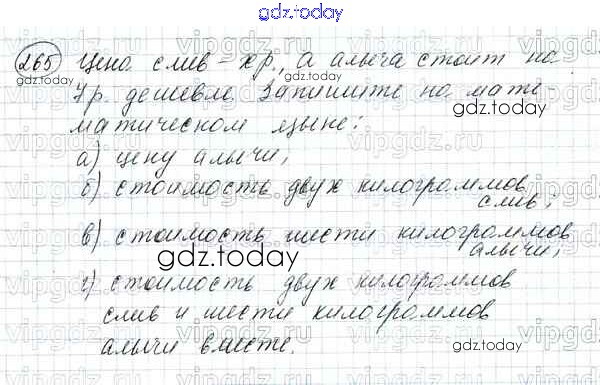 gdz.today
265 Цена слив - х р., а алыча стоит на
7 р. дешевле. Запишите на мате-
матическом языке:
а) цену алычи;
б) стоимость двух килограммов
слив;
в) стоимость шести килограммов
алычи;
г) стоимость двух килограммов
слив и шести килограммов
алычи вместе.
gdz.today
gdz.today
gdz.today
gdz.today
gdz.today
gdz.today
gdz.today